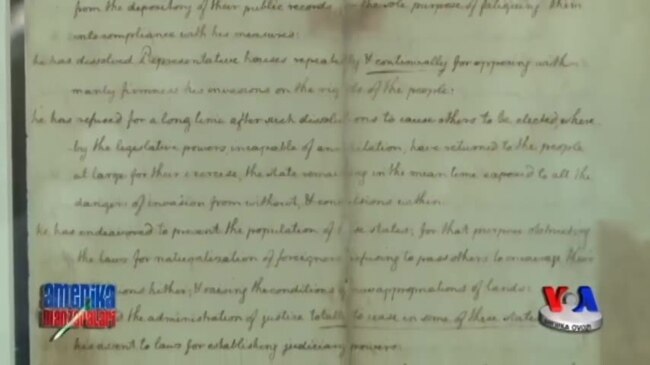 from the depository of their public records for the sole purpose of fatiguing them
into compliance with his measures:
he has dissolved Representative houses repeatedly & continually for opposing with
manly firmness his invasions on the rights of the people:
he has refused for a long time after such dissolutions to cause others to be elected, where
by the legislative powers, incapable of annihilation, have returned to the people
at large for their exercise, the state remaining in the mean time exposed to all the
dangers of invasion from without, & convulsions within:
he has endeavored to prevent the population of these states; for that purpose obstructing
the laws for naturalization of foreigners refusing to pass others to encourage their
hither; & raising the conditions of new appropriations of lands:
the administration of justice totally to cease in some of these states
his assent to laws for establishing judiciary powers:
amerika
manzaralari
VOA
AMERIKA OVOZI